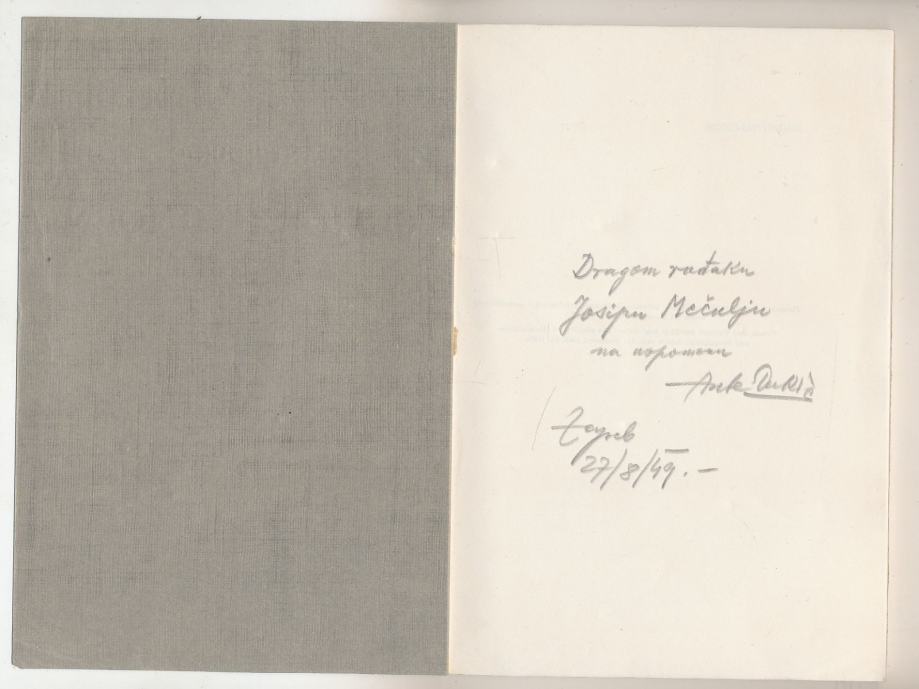 Dragom rođaku
Josipu Mečulju
na uspomenu
Ante Dukić
Zagreb
27/8/49.–